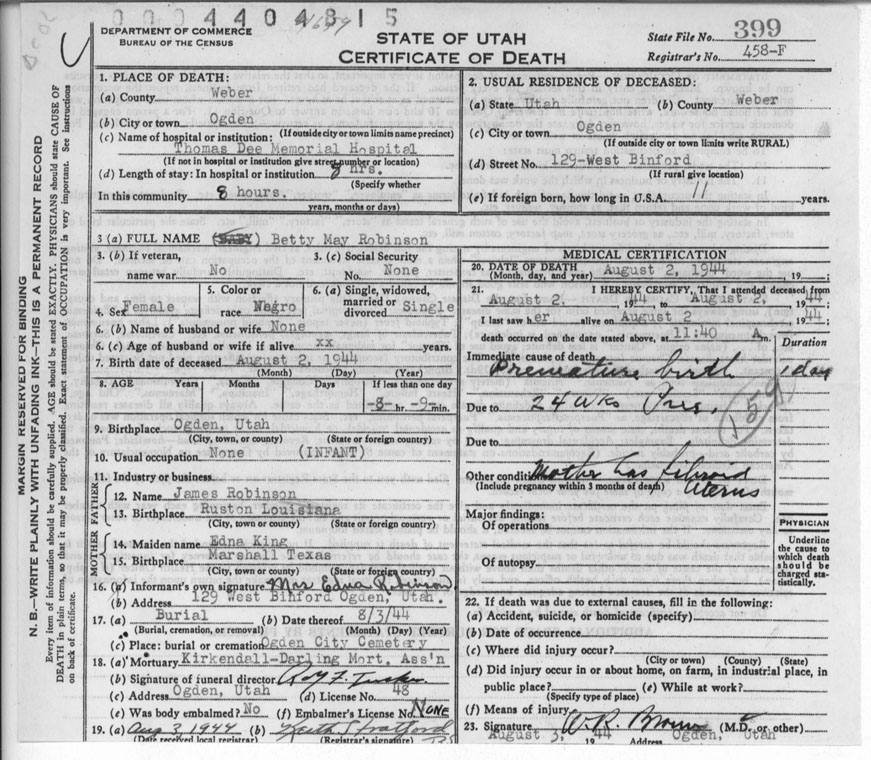 0004404815
DEPARTMENT OF COMMERCE
BUREAU OF THE CENSUS
STATE OF UTAH
CERTIFICATE OF DEATH
State File No. 399
Registrar's No. 458-F
MARGIN RESERVED FOR BINDING
N. B.—WRITE PLAINLY WITH UNFADING INK—THIS IS A PERMANENT RECORD
Every item of information should be carefully supplied. AGE should be stated EXACTLY. PHYSICIANS should state CAUSE OF
DEATH in plain terms, so that it may be properly classified. Exact statement of OCCUPATION is very important. See instructions
on back of certificate.
1. PLACE OF DEATH:
(a) County Weber
(b) City or town Ogden
(If outside city or town limits name precinct)
(c) Name of hospital or institution:
Thomas Dee Memorial Hospital
(If not in hospital or institution give street number or location)
(d) Length of stay: In hospital or institution 8 hrs.
(Specify whether
In this community 8 hours.
years, months or days)
2. USUAL RESIDENCE OF DECEASED:
(a) State Utah (b) County Weber
(c) City or town Ogden
(If outside city or town limits write RURAL)
(d) Street No. 129-West Binford
(If rural give location)
(e) If foreign born, how long in U.S.A. 11 years.
3 (a) FULL NAME (BABY) Betty May Robinson
3. (b) If veteran,
name war No
3. (c) Social Security
No. None
4. Sex Female
5. Color or
race Negro
6. (a) Single, widowed,
married or
divorced Single
6. (b) Name of husband or wife None
6. (c) Age of husband or wife if alive xx years.
7. Birth date of deceased August 2, 1944
(Month) (Day) (Year)
8. AGE Years Months Days If less than one day
-8- hr. -9- min.
9. Birthplace Ogden, Utah
(City, town, or county) (State or foreign country)
10. Usual occupation None (INFANT)
11. Industry or business
FATHER
12. Name James Robinson
13. Birthplace Ruston Louisiana
(City, town or county) (State or foreign country)
MOTHER
14. Maiden name Edna King
15. Birthplace Marshall Texas
(City, town or county) (State or foreign country)
16. (a) Informant's own signature Mrs Edna Robinson
(b) Address 129 West Binford Ogden, Utah.
17. (a) Burial (b) Date thereof 8/3/44
(Burial, cremation, or removal) (Month) (Day) (Year)
(c) Place: burial or cremation Ogden City Cemetery
18. (a) Mortuary Kirkendall-Darling Mort. Ass'n
(b) Signature of funeral director
(c) Address Ogden, Utah (d) License No. 48
(e) Was body embalmed? No (f) Embalmer's License No. NONE
19. (a) Aug 3, 1944 (b) Keith Stratford
(Date received local registrar) (Registrar's signature)
MEDICAL CERTIFICATION
20. DATE OF DEATH
(Month, day, and year) August 2, 1944, 19
21. I HEREBY CERTIFY, That I attended deceased from
August 2, 1944 to August 2, 1944
I last saw her alive on August 2 1944;
death occurred on the date stated above, at 11:40 A m.
Duration
Immediate cause of death
Premature birth 1 day
Due to 24 wks Preg. 159
Due to
Other conditions Mother has fibroid
(Include pregnancy within 3 months of death) Uterus
Major findings:
Of operations
Of autopsy
PHYSICIAN
Underline
the cause to
which death
should be
charged sta-
tistically.
22. If death was due to external causes, fill in the following:
(a) Accident, suicide, or homicide (specify)
(b) Date of occurrence
(c) Where did injury occur?
(City or town) (County) (State)
(d) Did injury occur in or about home, on farm, in industrial place, in
public place? (e) While at work?
(Specify type of place)
(f) Means of injury
23. Signature W.R. Brown (M.D. or other)
August 3, 1944 Address Ogden, Utah